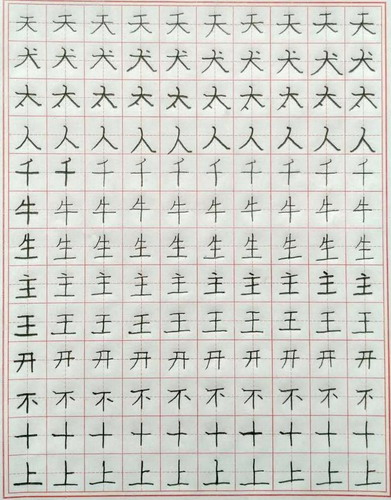 天天天天天天天天天天
犬犬犬犬犬犬犬犬犬犬
太太太太太太太太太太
人人人人人人人人人人
千千千千千千千千千千
牛牛牛牛牛牛牛牛牛牛
生生生生生生生生生生
主主主主主主主主主主
王王王王王王王王王王
开开开开开开开开开开
不不不不不不不不不不
十十十十十十十十十十
上上上上上上上上上上